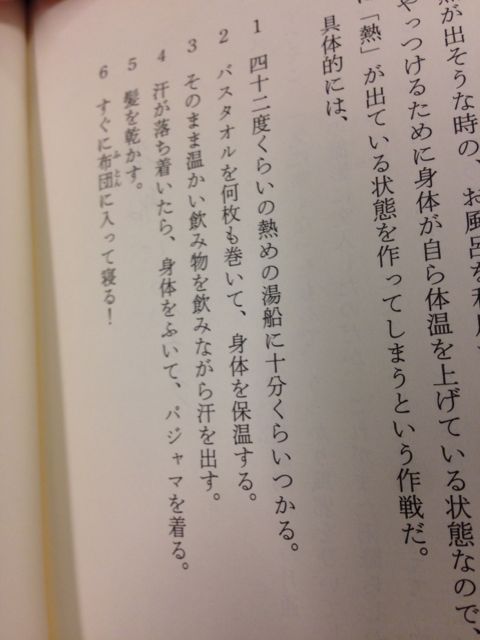 熱が出そうな時の、お風呂を利用
やっつけるために身体が自ら体温を上げている状態なので、
に「熱」が出ている状態を作ってしまうという作戦だ。
具体的には、
1 四十二度くらいの熱めの湯船に十分くらいつかる。
2 バスタオルを何枚も巻いて、身体を保温する。
3 そのまま温かい飲み物を飲みながら汗を出す。
4 汗が落ち着いたら、身体をふいて、パジャマを着る。
5 髪を乾かす。
6 すぐに布団に入って寝る！